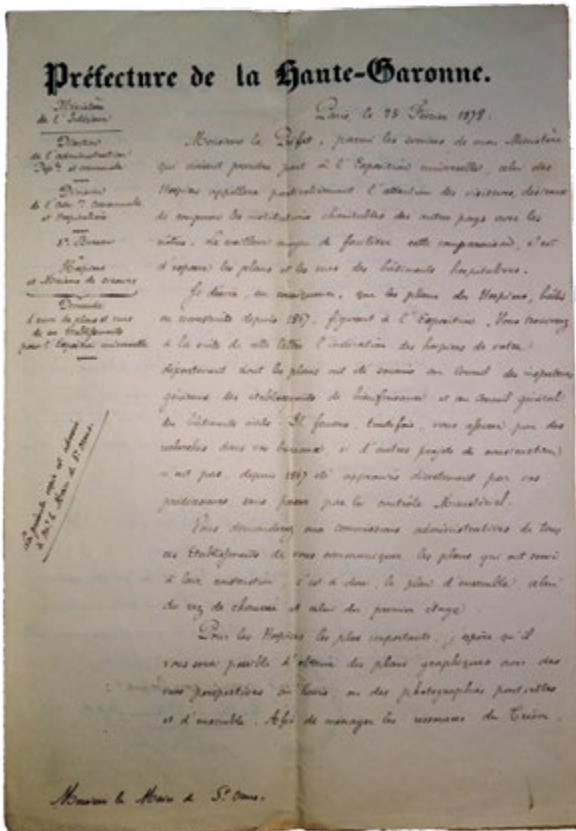 Préfecture de la Haute-Garonne.
Ministère
de l'Intérieur
Direction
de l'administration
Dép.le et communale
Division
de l'Adm.on communale
et hospitalière
Bureau
Hospices
et Maisons de secours
Demande
d'envoi de plans et vues
de ces Etablissements
pour l'Exposition universelle
Paris, le 25 Février 1878.
Monsieur le Préfet, parmi les services de mon Ministère
qui doivent prendre part à l'Exposition universelle, celui des
Hospices appellera particulièrement l'attention des visiteurs, désireux
de comparer les institutions charitables des autres pays avec les
nôtres. Le meilleur moyen de faciliter cette comparaison, c'est
d'exposer les plans et les vues des bâtiments hospitaliers.
Je désire, en conséquence, que les plans des Hospices, bâtis
ou construits depuis 1867, figurent à l'Exposition. Vous trouverez
à la suite de cette lettre l'indication des hospices de votre
département dont les plans ont été soumis au Conseil des inspecteurs
généraux des établissements de bienfaisance et au Conseil général
des bâtiments civils. Il faudra, toutefois, vous assurer par des
recherches dans vos bureaux, si d'autres projets de construction
n'ont pas, depuis 1867 été approuvés directement par vos
prédécesseurs sans passer par le contrôle Ministériel.
Vous demanderez aux commissions administratives de tous
ces Etablissements de vous communiquer les plans qui ont servi
à leur construction c'est à dire, le plan d'ensemble, celui
du rez de chaussée et celui du premier étage.
Pour les Hospices les plus importants, j'espère qu'il
vous sera possible d'obtenir des plans graphiques avec des
vues perspectives ou lavis, ou des photographies partielles
et d'ensemble. Afin de ménager les ressources du Trésor,
La présente copie est adressée
à Mr le Maire de St
Monsieur le Maire de St